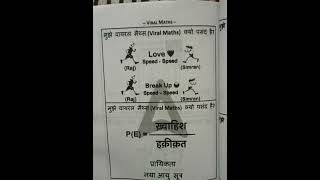 ~ VIRAL MATHS ~
मुझे वायरल मैथ्स (Viral Maths) क्यों पसंद है?
Love
Speed - Speed
(Raj) (Simran)
Break Up
Speed - Speed
(Raj) (Simran)
मुझे वायरल मैथ्स (Viral Maths) क्यों पसंद है?
P(E) = ख्वाहिश
हक़ीक़त
प्रायिकता
नया आयु सूत्र